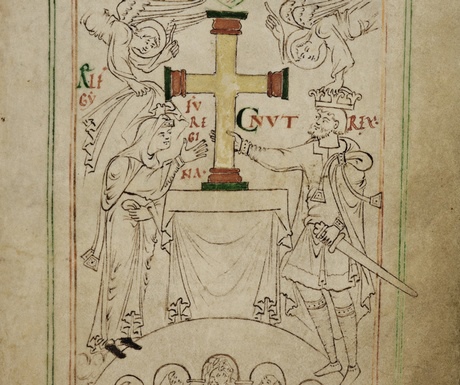 ÆLF
GẎ
ÞV
RE
GI
NA·
CNVT REX·